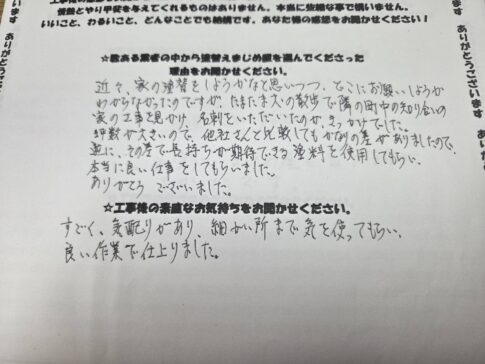 情熱とやり甲斐を与えてくれるものはありません。本当に些細な事で構いません。
いいこと、わるいこと、どんなことでも結構です。あなた様の感想をお聞かせください！
☆数ある業者の中から塗替えまじめ屋を選んでくださった
理由をお聞かせください。
近々、家の塗替をしようかなと思いつつ、どこにお願いしようか
わからなかったのですが、たまたま犬の散歩で隣の町中の知り合いの
家の工事を見かけ、名刺をいただいたのが、きっかけでした。
坪数が大きいので、他社さんと比較してもかなりの差がありましたので、
逆に、その差で長持ちが期待できる塗料を使用してもらい、
本当に良い仕事をしてもらいました。
ありがとうございました。
☆工事後の素直なお気持ちをお聞かせください。
すごく、気配りがあり、細かい所まで気を使ってもらい、
良い作業で仕上りました。
ます　ありがと
ありがとうございます　あり